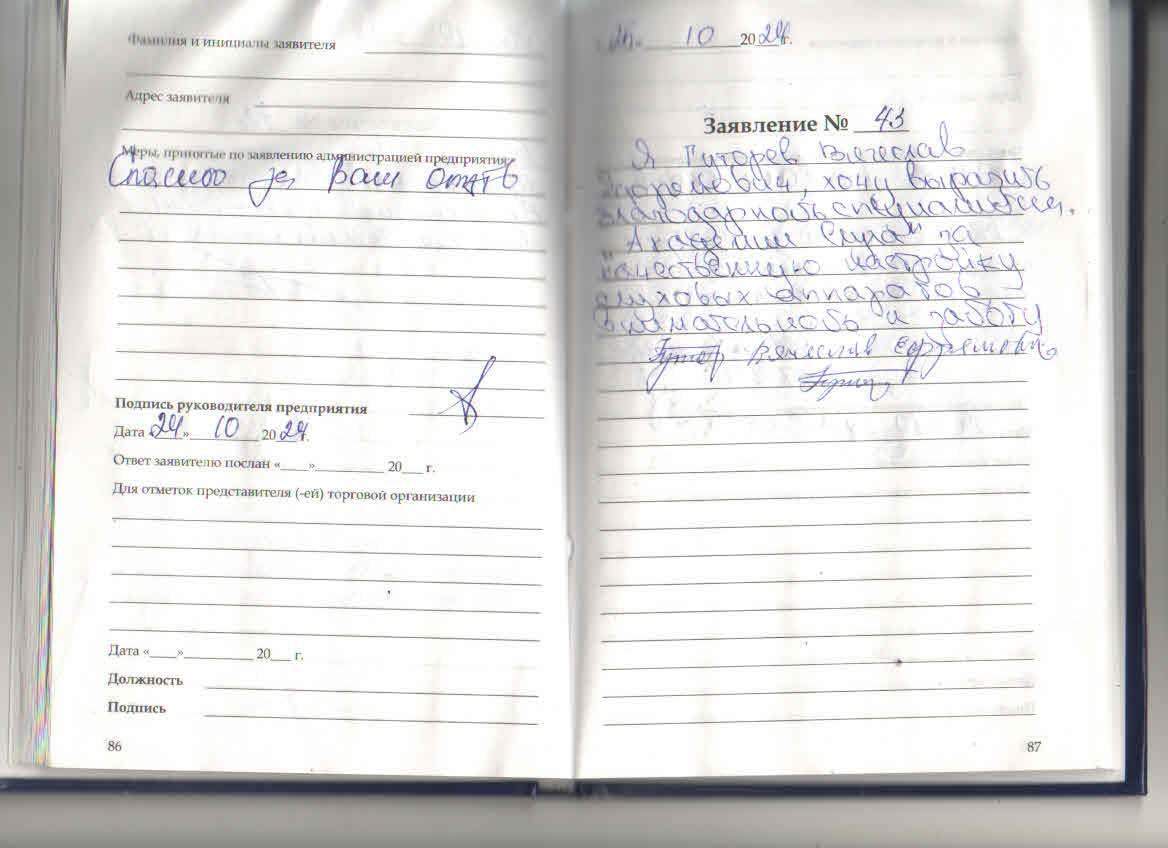 Фамилия и инициалы заявителя
Адрес заявителя
Меры, принятые по заявлению администрацией предприятия
Спасибо за Ваш отзыв
Подпись руководителя предприятия
Дата «24» 10 2024г.
Ответ заявителю послан «____»__________ 20___ г.
Для отметок представителя (-ей) торговой организации
Дата «____»__________ 20___ г.
Должность
Подпись
86
10 2024г.
Заявление № 43
Я Гуторев Вячеслав
Ефремович, хочу выразить
благодарность специалистам
"Академии Слуха" за
качественную настройку
слуховых аппаратов,
внимательность и заботу
Вячеслав Ефремович
87